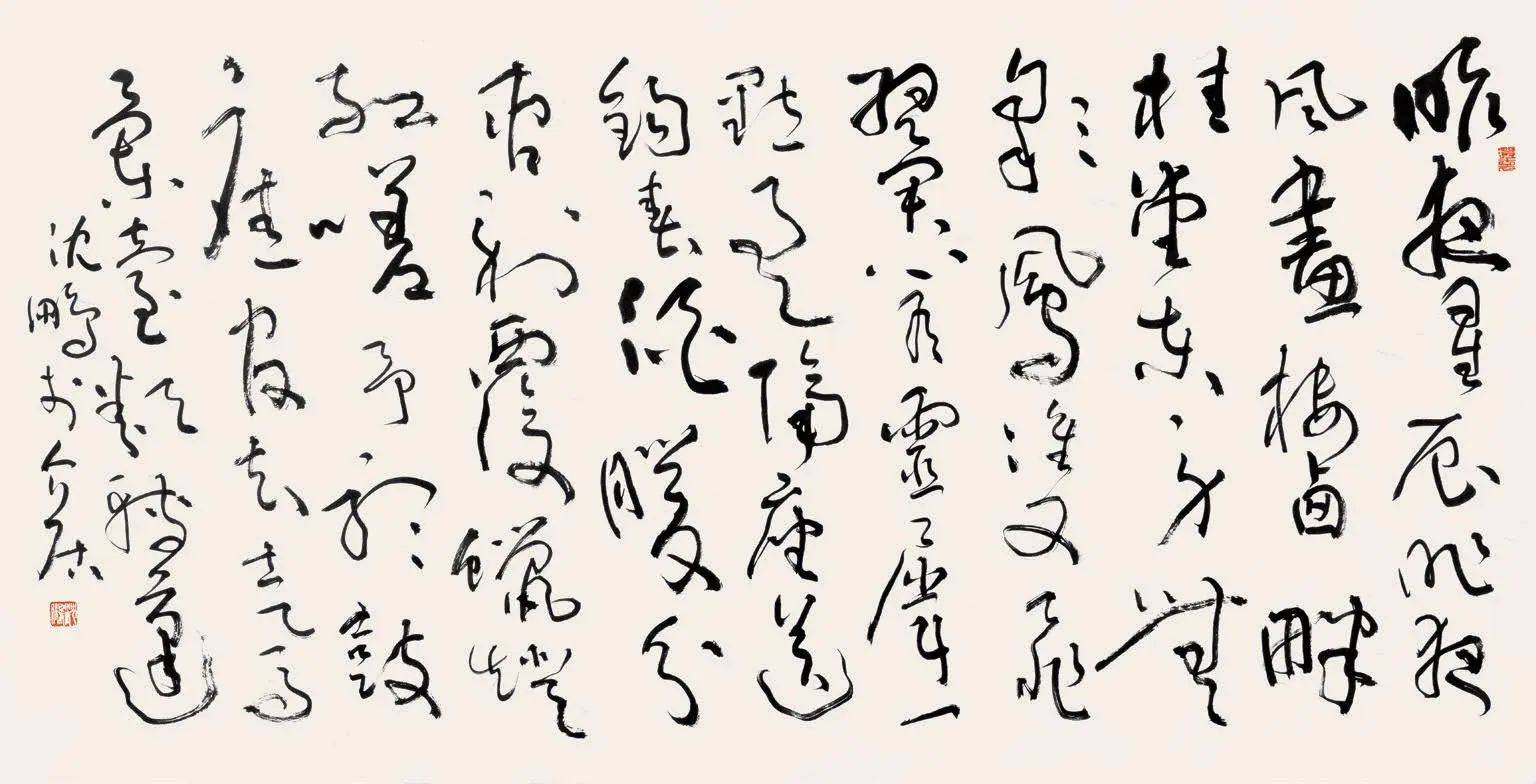 昨夜星辰昨夜
風畫樓西畔
桂堂東身無
彩鳳雙飛
翼心有靈犀一
點通隔座送
鉤春酒暖分
曹射覆蠟燈
紅嗟予聽鼓
應官去走馬
蘭臺類轉蓬
沈鵬於介居